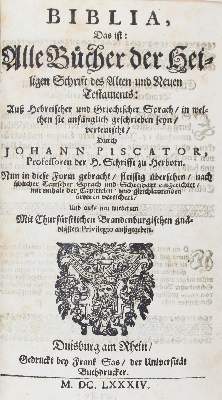 BIBLIA,
Das ist:
Alle Bücher der Hei-
ligen Schrift des Alten und Neuen
Testaments:
Auß Hebreischer und Griechischer Sprach / in wel-
chen sie anfänglich geschrieben seyn /
verteutscht /
Durch
JOHANN PISCATOR,
Professoren der H. Schrifft zu Herborn.
Nun in diese Form gebracht / fleissig übersehen / nach
Teutscher Sprach und
mit inhalt der Capittelen / und
Und auffs neu
Mit Churfürstlichen Brandenburgischen gnä-
digsten Privilegio außgegeben.
Duisburg am Rhein /
Gedruckt bey Frantz Sas / der Universität
Buchdrucker.
M. DC. LXXXIV.